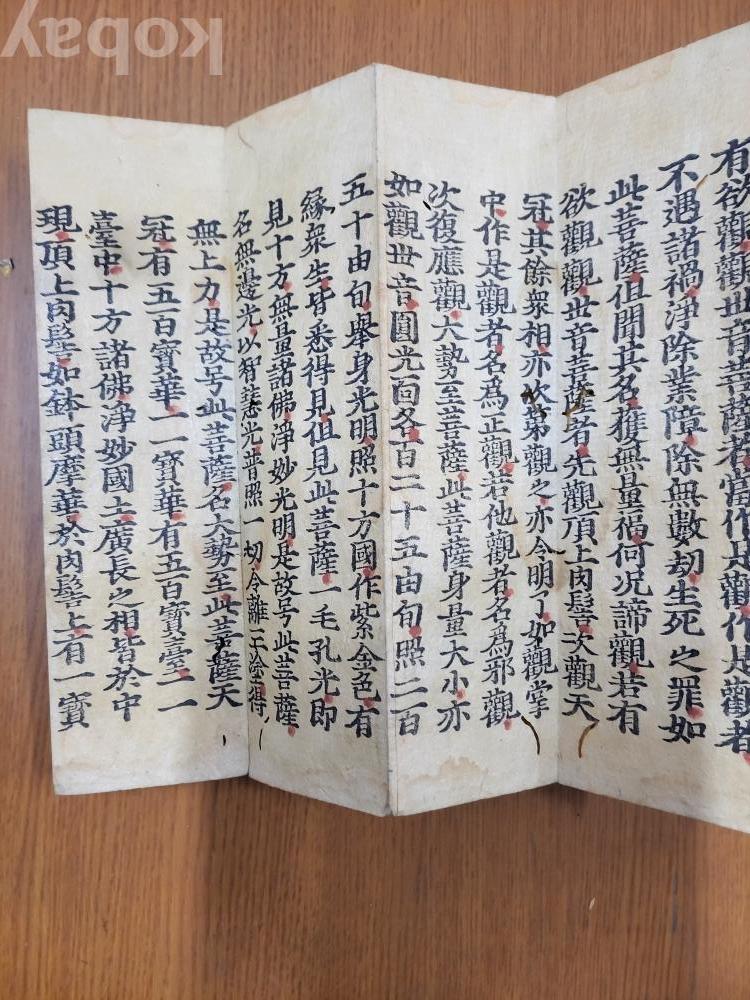 有欲觀觀世音菩薩者當作是觀作是觀者
不遇諸禍淨除業障除無數劫生死之罪如
此菩薩但聞其名獲無量福何况諦觀若有
欲觀觀世音菩薩者先觀頂上肉髻次觀天
冠其餘衆相亦次第觀之亦令明了如觀掌
中作是觀者名爲正觀若他觀者名爲邪觀
次復應觀大勢至菩薩此菩薩身量大小亦
如觀世音圓光面各百二十五由旬照二百
五十由旬舉身光明照十方國作紫金色有
緣衆生皆悉得見但見此菩薩一毛孔光即
見十方無量諸佛淨妙光明是故号此菩薩
名無邊光以智慧光普照一切令離三塗得
無上力是故号此菩薩名大勢至此菩薩天
冠有五百寶華一一寶華有五百寶臺一一
臺中十方諸佛淨妙國土廣長之相皆於中
現頂上肉髻如鉢頭摩華於肉髻上有一寶
kobay